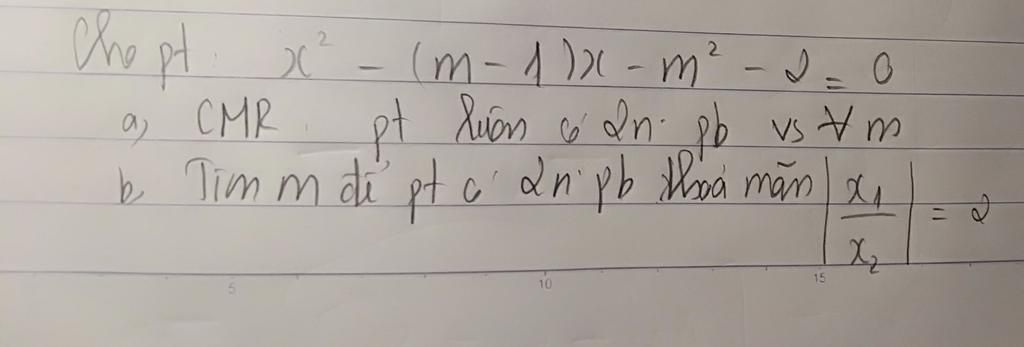 Cho pt: x² - (m-1)x - m² - 2 = 0
a, CMR pt luôn có 2n· pb vs ∀ m
b, Tìm m để pt có 2n· pb thoả mãn |x₁/x₂| = 2
5 10 15